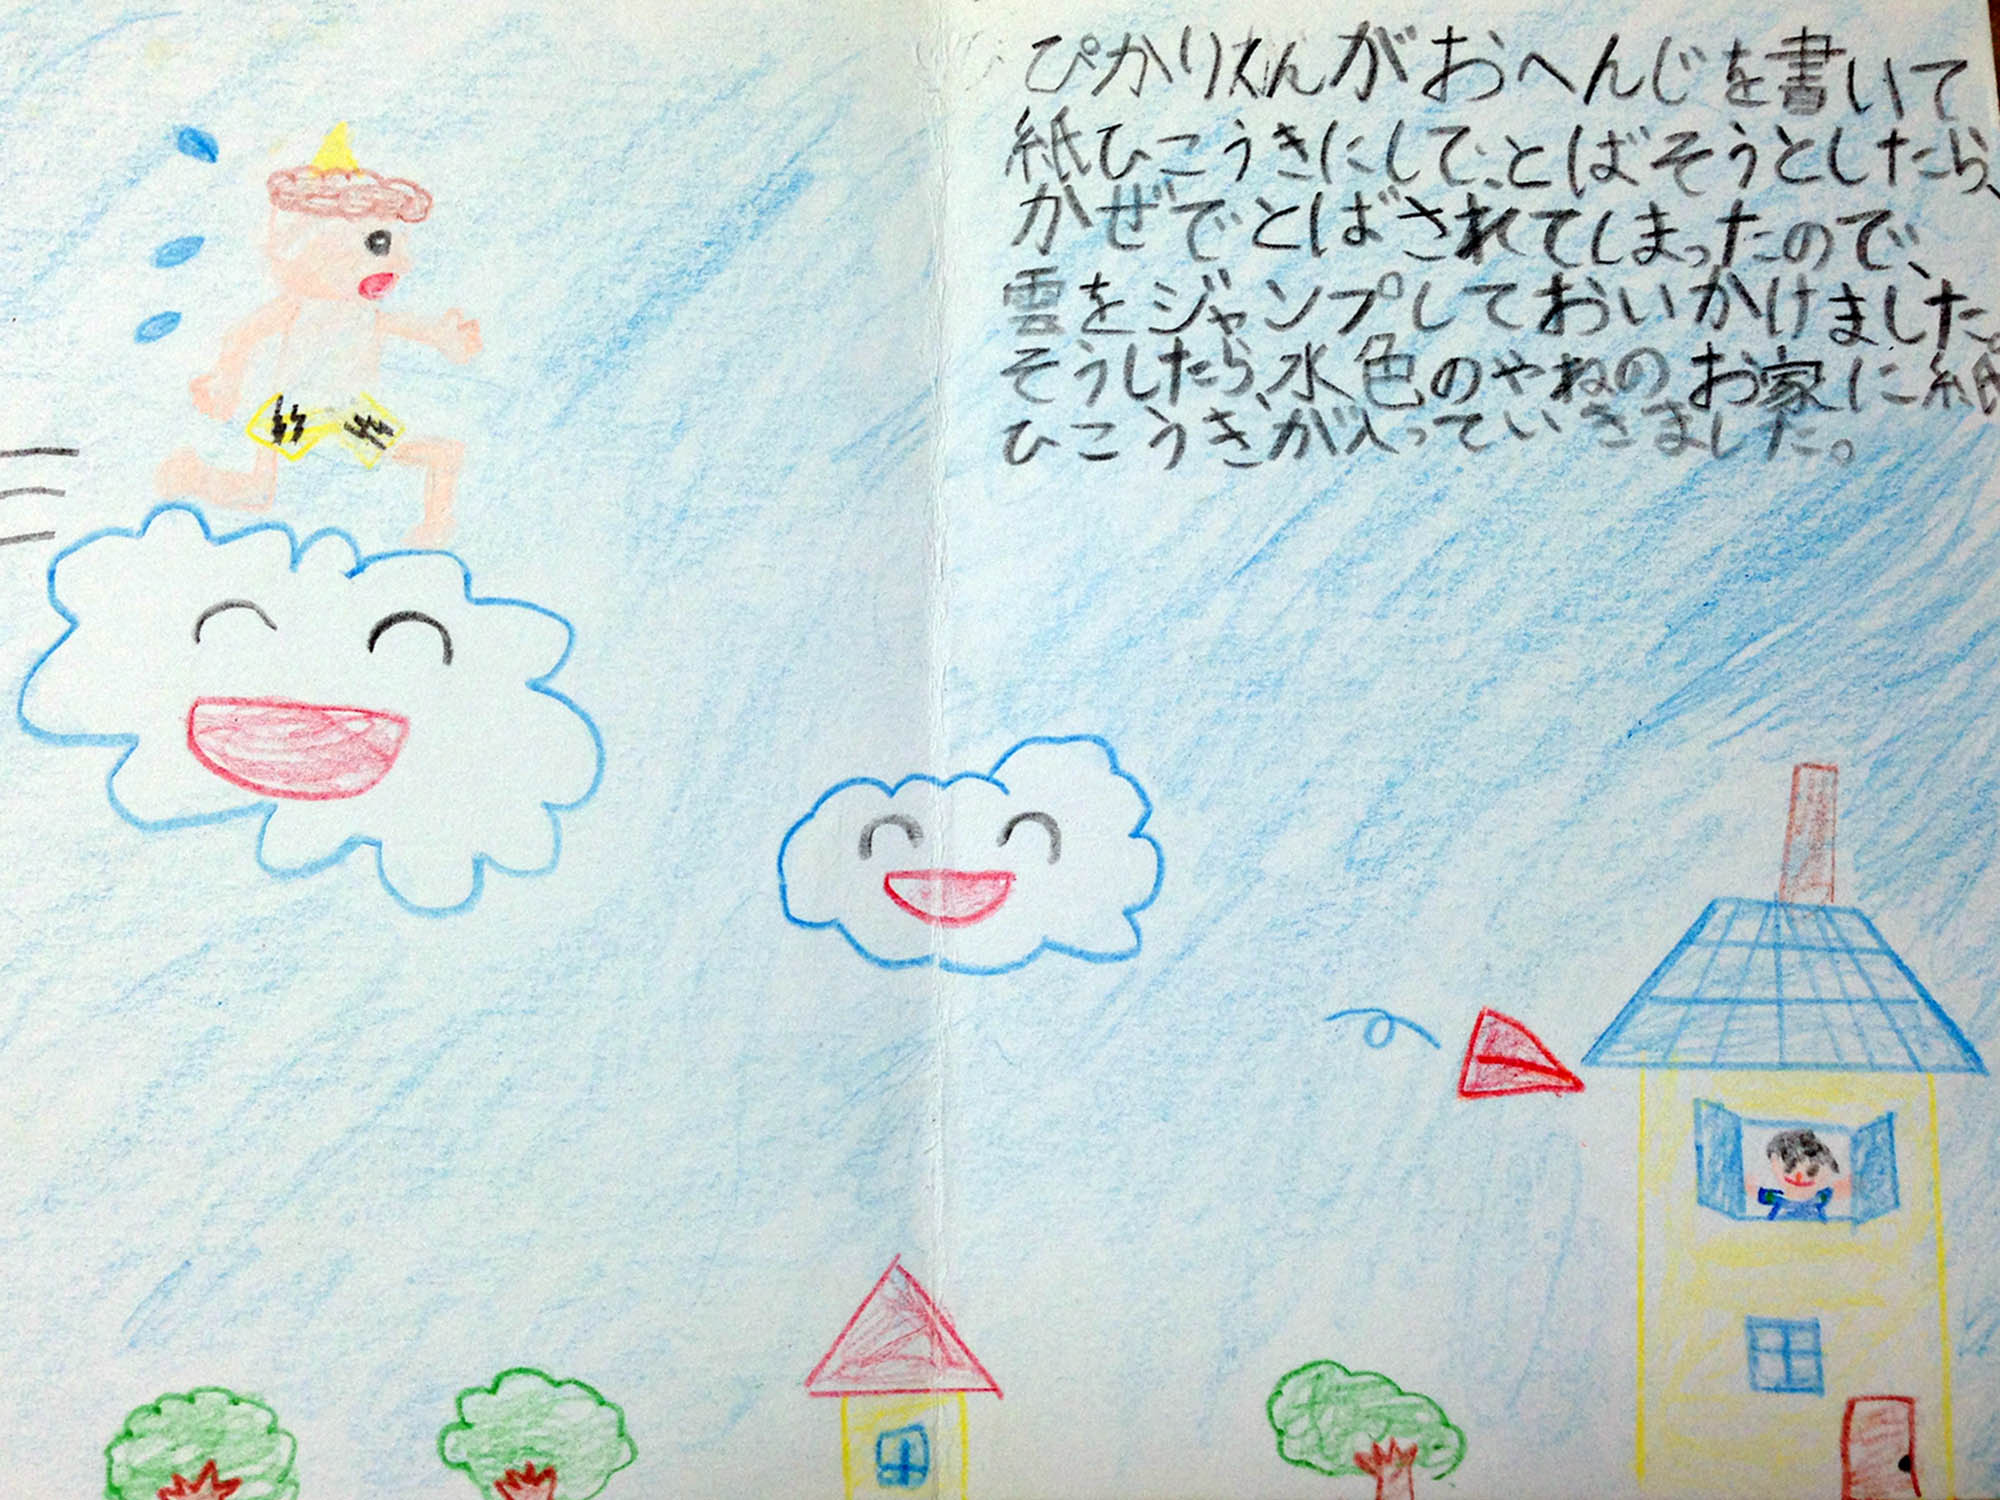 ぴかりんがおへんじを書いて
紙ひこうきにして、とばそうとしたら、
かぜでとばされてしまったので、
雲をジャンプしておいかけました。
そうしたら、水色のやねのお家に紙
ひこうきが入っていきました。